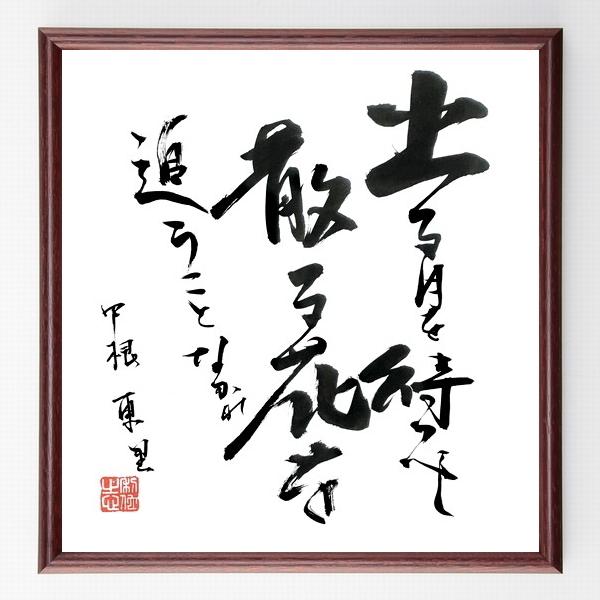 出る月を待つべし
散る花を
追うことなかれ
中根東里